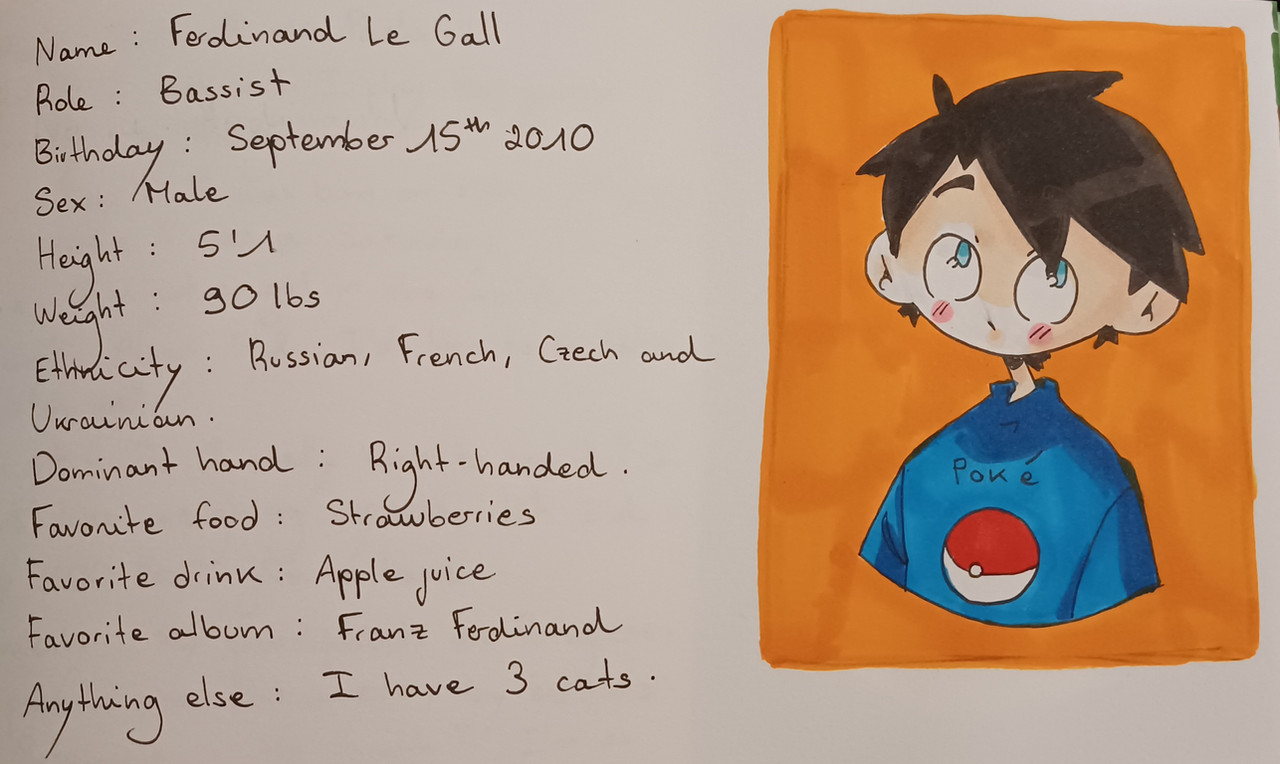 Name : Ferdinand Le Gall
Role : Bassist
Birthday : September 15th 2010
Sex : Male
Height : 5'1
Weight : 90 lbs
Ethnicity : Russian, French, Czech and
Ukrainian.
Dominant hand : Right-handed.
Favorite food : Strawberries
Favorite drink : Apple juice
Favorite album : Franz Ferdinand
Anything else : I have 3 cats.
Poké